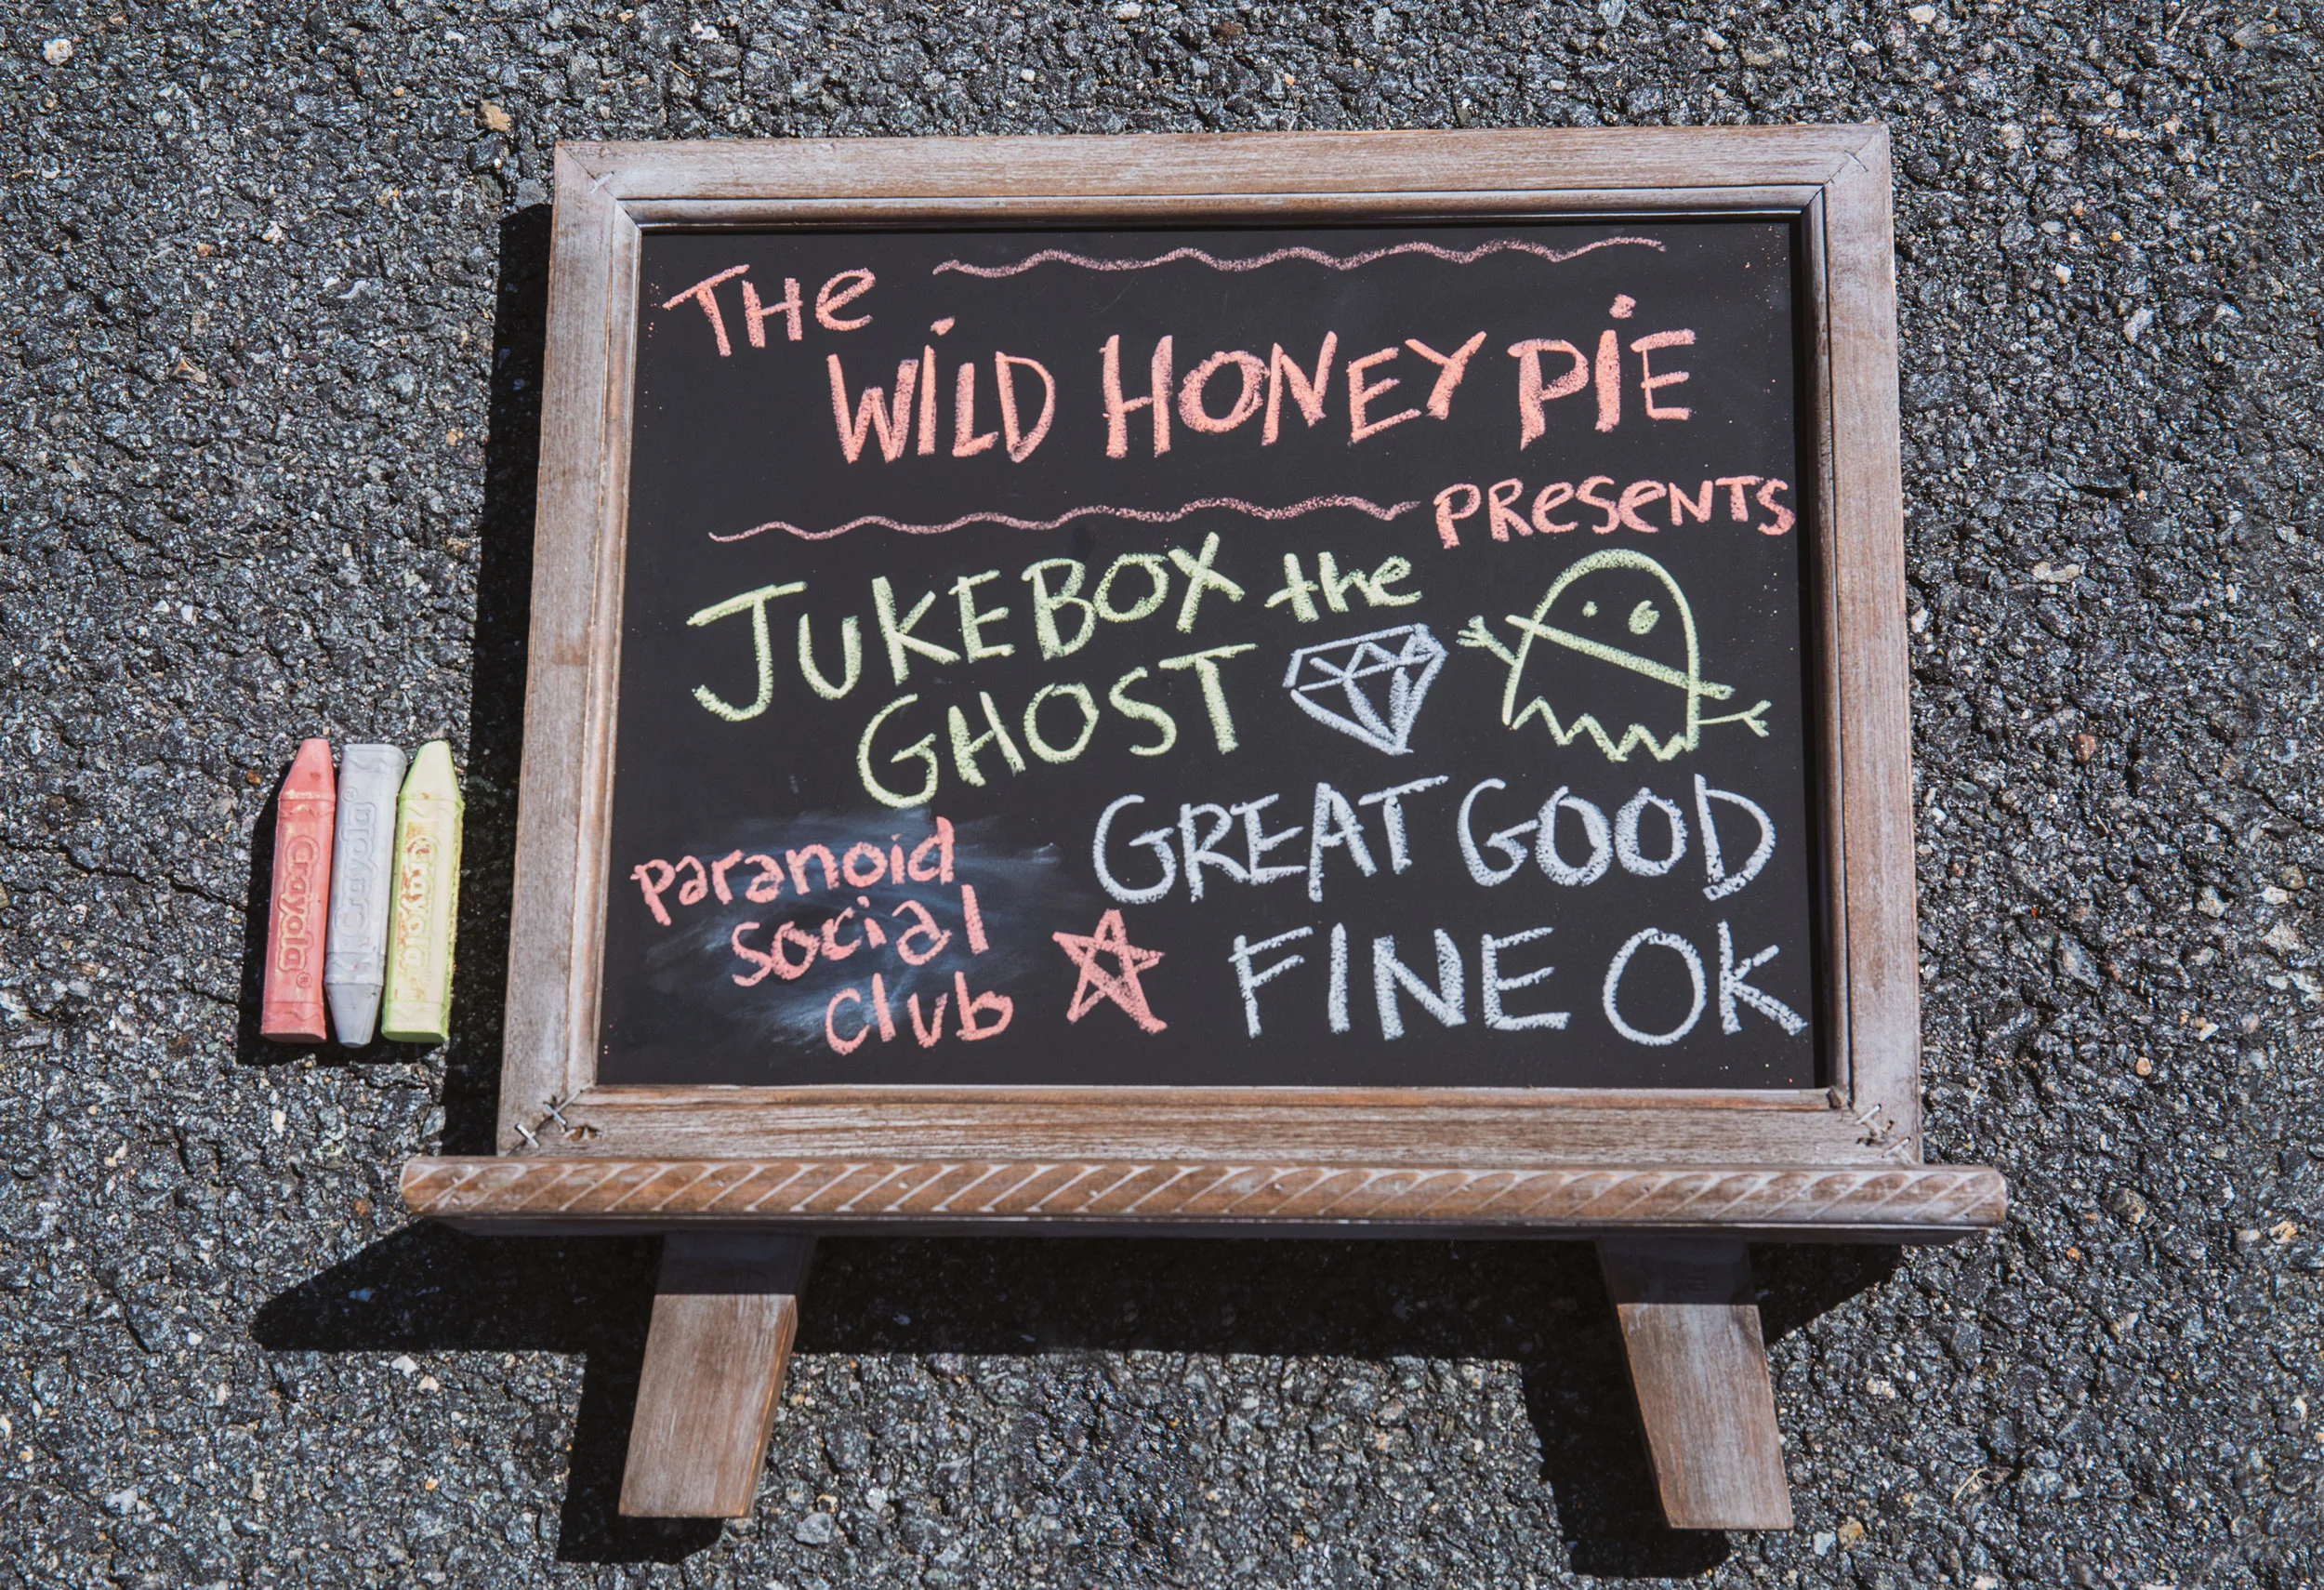 THe
WiLD HONEY PiE
PReSeNTS
JUKEBOX the
GHOST
GREAT GOOD
FINE OK
paranoid
social
club
Crayola®
Crayola®
Crayola